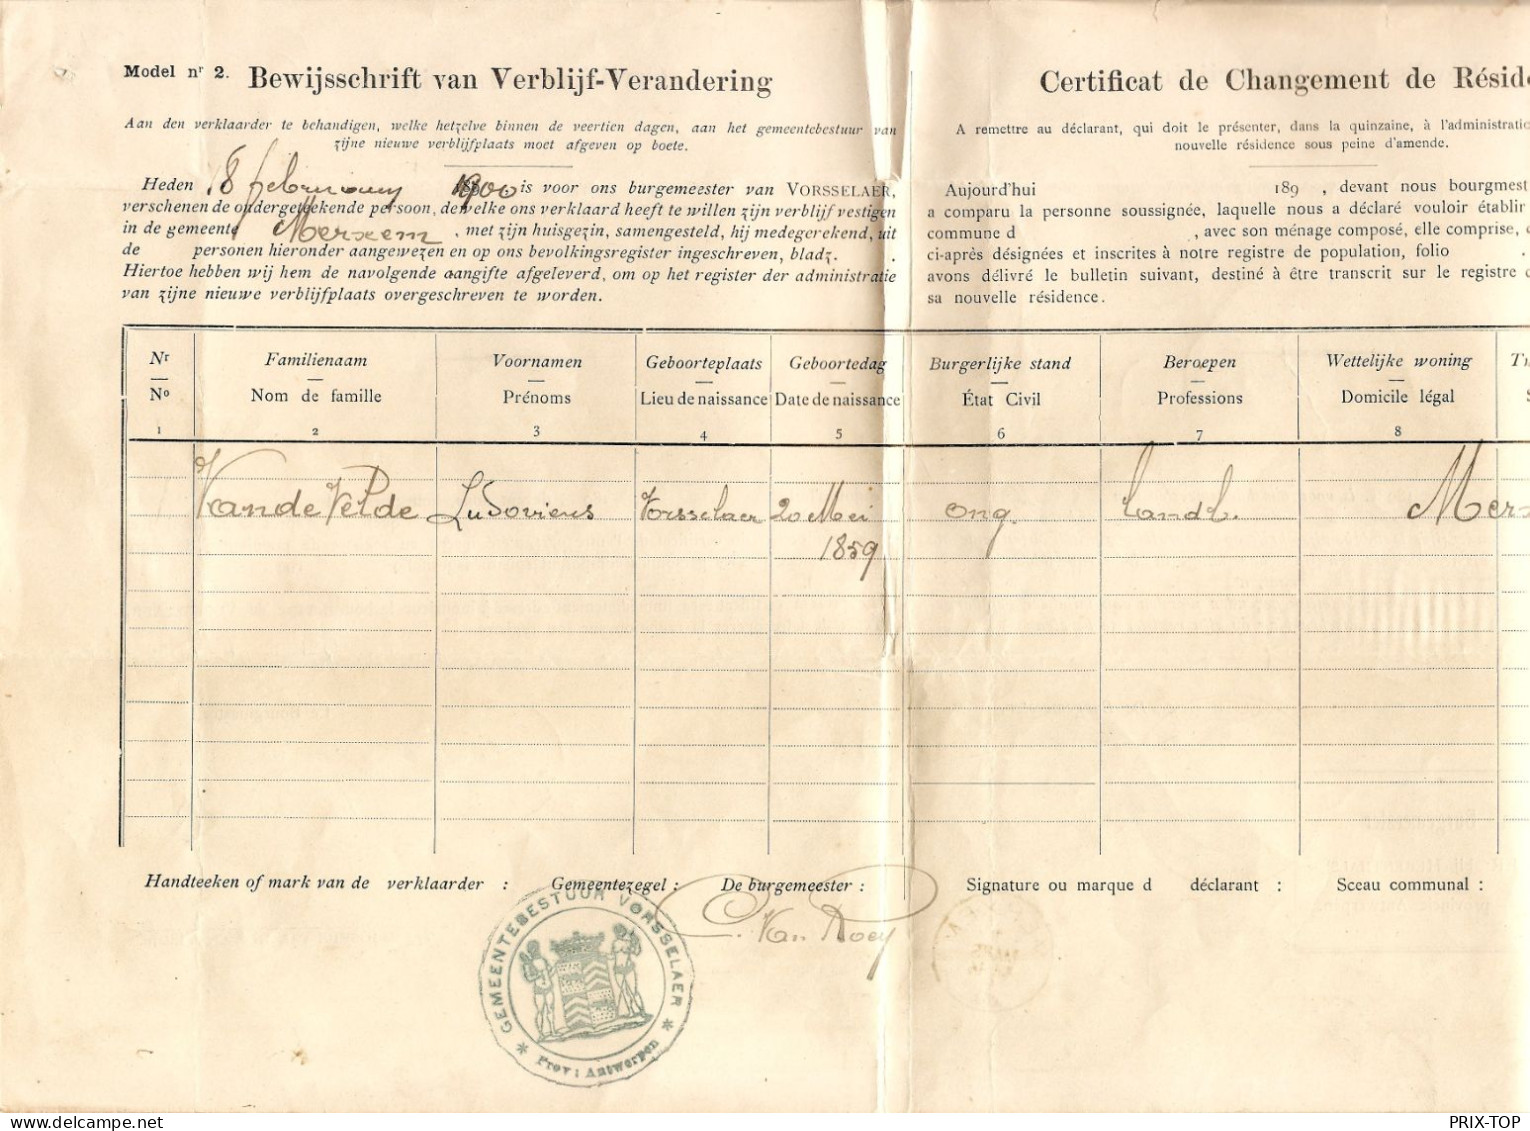 Model nr 2. Bewijsschrift van Verblijf-Verandering
Aan den verklaarder te behandigen, welke hetzelve binnen de veertien dagen, aan het gemeentebestuur van
zijne nieuwe verblijfplaats moet afgeven op boete.
Heden 18 februarij 1900 is voor ons burgemeester van VORSSELAER,
verschenen de ondergeteekende persoon, dewelke ons verklaard heeft te willen zijn verblijf vestigen
in de gemeente Merxem, met zijn huisgezin, samengesteld, hij medegerekend, uit
de personen hieronder aangewezen en op ons bevolkingsregister ingeschreven, bladz. .
Hiertoe hebben wij hem de navolgende aangifte afgeleverd, om op het register der administratie
van zijne nieuwe verblijfplaats overgeschreven te worden.
Certificat de Changement de Réside
A remettre au déclarant, qui doit le présenter, dans la quinzaine, à l'administratio
nouvelle résidence sous peine d'amende.
Aujourd'hui 189 , devant nous bourgmest
a comparu la personne soussignée, laquelle nous a déclaré vouloir établir
commune d , avec son ménage composé, elle comprise,
ci-après désignées et inscrites à notre registre de population, folio .
avons délivré le bulletin suivant, destiné à être transcrit sur le registre
sa nouvelle résidence.
Nr Familienaam Voornamen Geboorteplaats Geboortedag Burgerlijke stand Beroepen Wettelijke woning
No Nom de famille Prénoms Lieu de naissance Date de naissance État Civil Professions Domicile légal
1 2 3 4 5 6 7 8
Van de Velde Ludovicus Vorsselaer 20 Mei ong. landb. Merx
1859
Handteeken of mark van de verklaarder : Gemeentezegel : De burgemeester : Signature ou marque d déclarant : Sceau communal :
C. Van Roey
* GEMEENTEBESTUUR VORSSELAER *
Prov: Antwerpen
PRIX-TOP